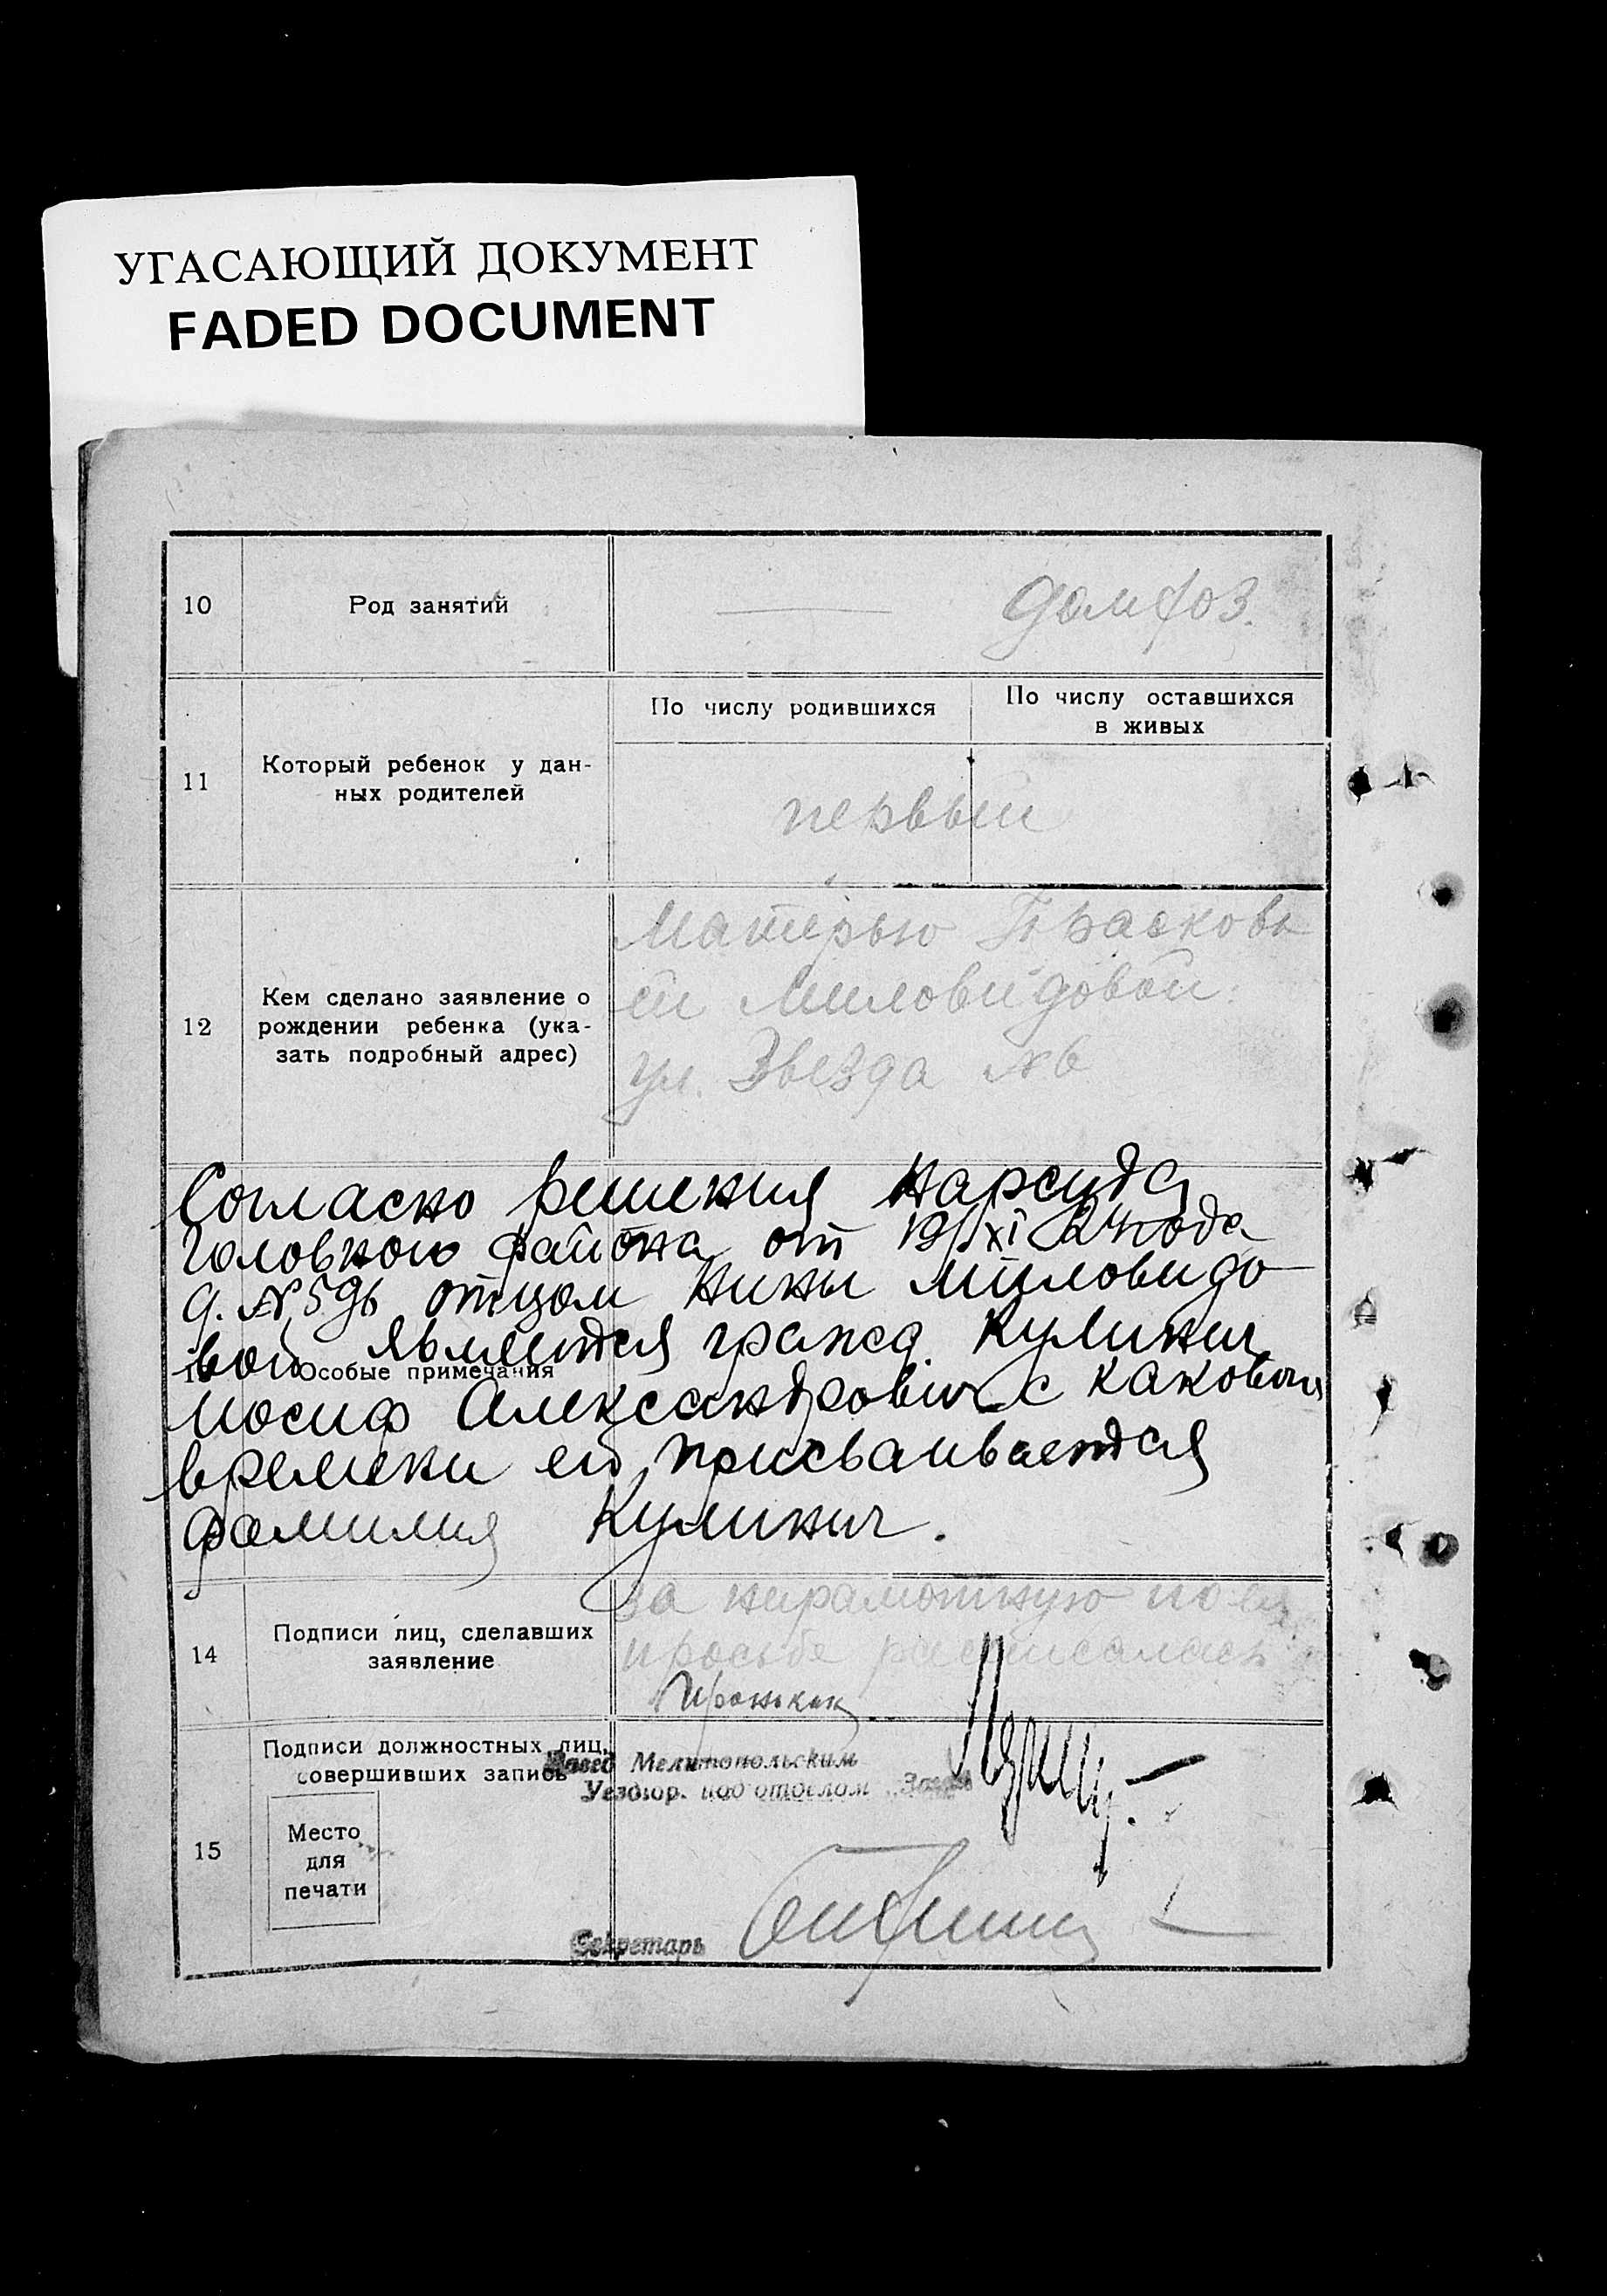 УГАСАЮЩИЙ ДОКУМЕНТ
FADED DOCUMENT
10
Род занятий
домхоз.
11
Который ребенок у дан-
ных родителей
По числу родившихся
По числу оставшихся
в живых
первый
12
Кем сделано заявление о
рождении ребенка (ука-
зать подробный адрес)
Матерью Прасковь
ей Миловидовой.
ул. Звезда №6
Согласно решения Нарсуда
Головного района от 19/XI 24 года
д. № отцом Нины Миловидо
вой является гражд. Кулинич
Особые примечания
Иосиф Александрович с каковых
времени ей присваивается
фамилия Кулинич.
14
Подписи лиц, сделавших
заявление
за неграмотную по ея
просьбе расписалась
15
Подписи должностных лиц,
совершивших запись
Место
для
печати
Завед Мелитопольским
Уездюр. подотделом Загса
Секретарь